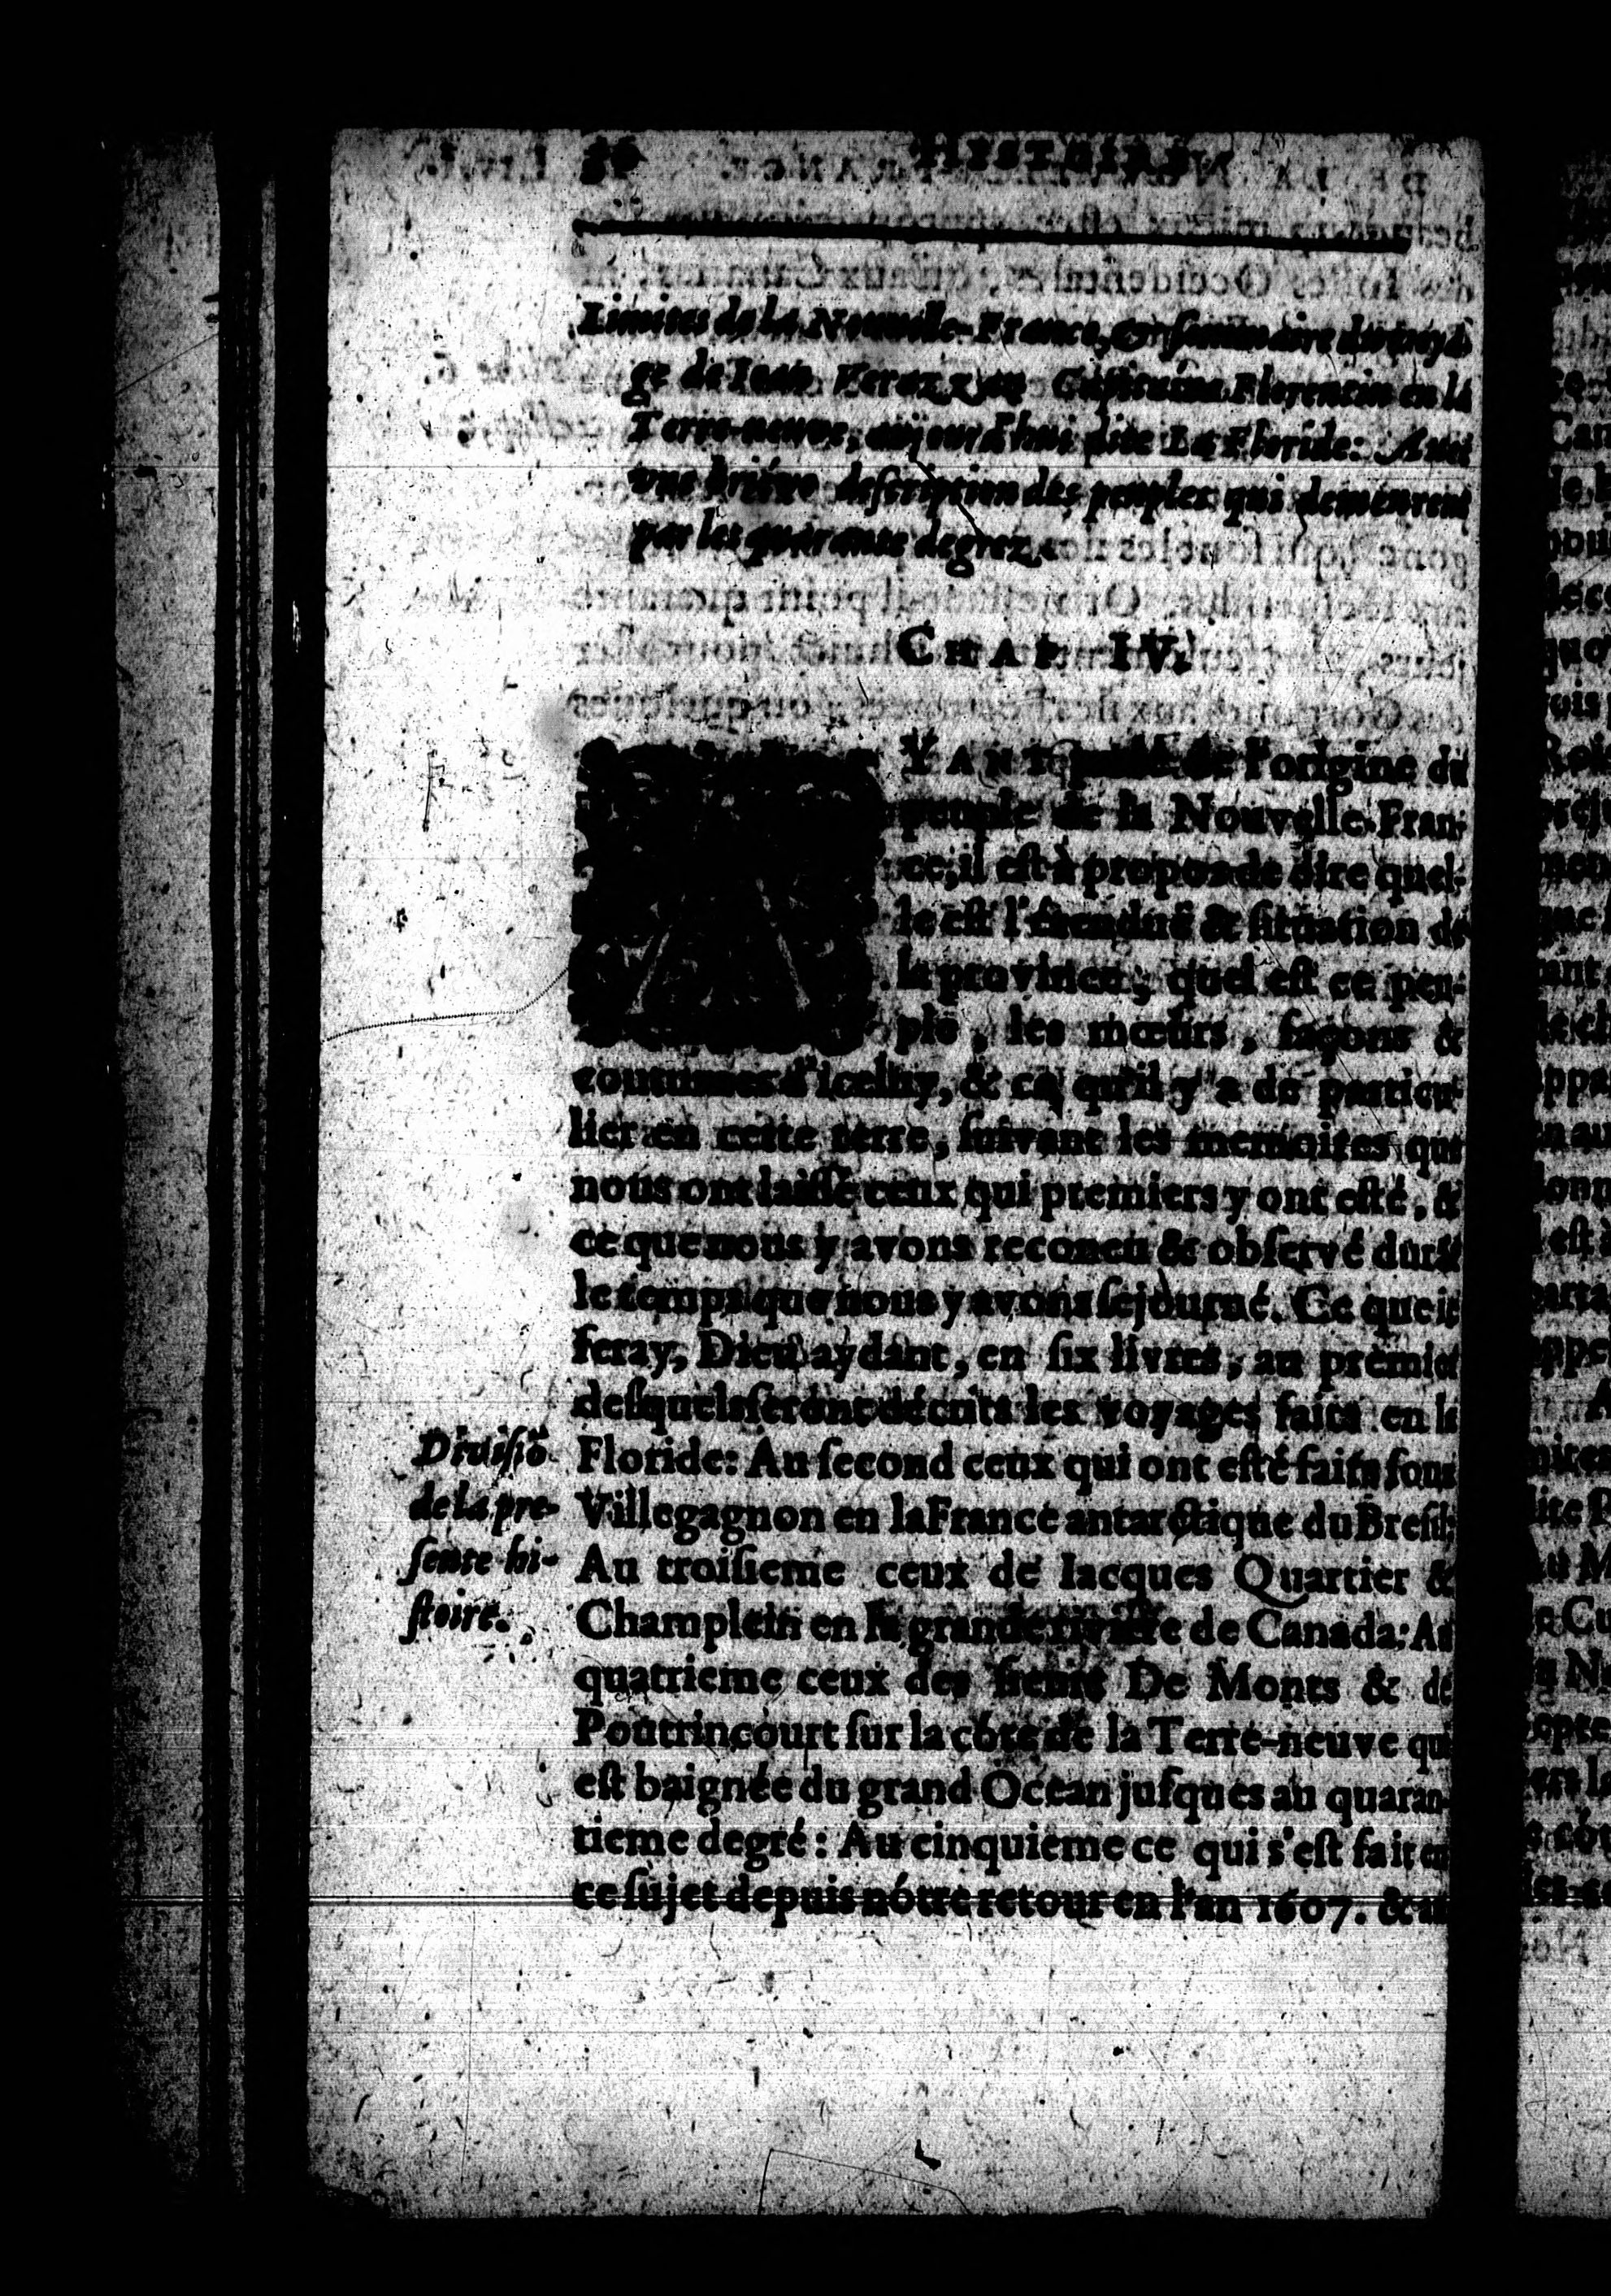 30 HISTOIRE
Limites de la Nouvelle-France, & sommaire du voya-
ge de Iean Verazzan Capitaine Florentin en la
Terre-neuve, aujourd'hui dite La Floride: Avec
vne briéve description des peuples qui demeurent
par les quarante degrez.
CHAP. IV.
AYANT parlé de l'origine du
peuple de la Nouvelle-Fran-
ce, il est à propos de dire quel-
le est l'étendue & situation de
la province, quel est ce peu-
ple, les mœurs, façons &
coutumes d'icelui, & ce qu'il y a de particu-
lier en cette terre, suivant les memoires que
nous ont laissé ceux qui premiers y ont esté, &
ce que nous y avons reconeu & observé durāt
le temps que nous y avons sejourné. Ce que ie
feray, Dieu aydant, en six livres, au premier
desquels seront décrits les voyages faits en la
Floride: Au second ceux qui ont esté faits souz
Villegagnon en la France antarctique du Bresil:
Au troisieme ceux de Iacques Quartier &
Champlein en la grande riviere de Canada: Au
quatrieme ceux des sieurs De Monts & de
Poutrincourt sur la cóte de la Terre-neuve qui
est baignée du grand Ocean jusques au quaran-
tieme degré: Au cinquieme ce qui s'est fait en
ce sujet depuis nótre retour en l'an 1607. & au
Divisiō
de la pre-
sente hi-
stoire.